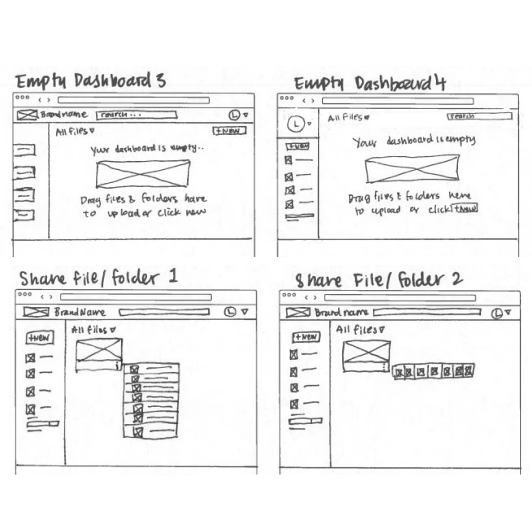 Empty Dashboard 3
Brandname
search...
L
All Files
+New
Your dashboard is empty..
Drag files & folders here
to upload or click new
Empty Dashboard 4
L
All Files
search
+New
Your dashboard is empty
Drag files & folders here
to upload or click +New
Share File/folder 1
BrandName
L
+New
All files
Share File/folder 2
Brandname
L
+New
All files